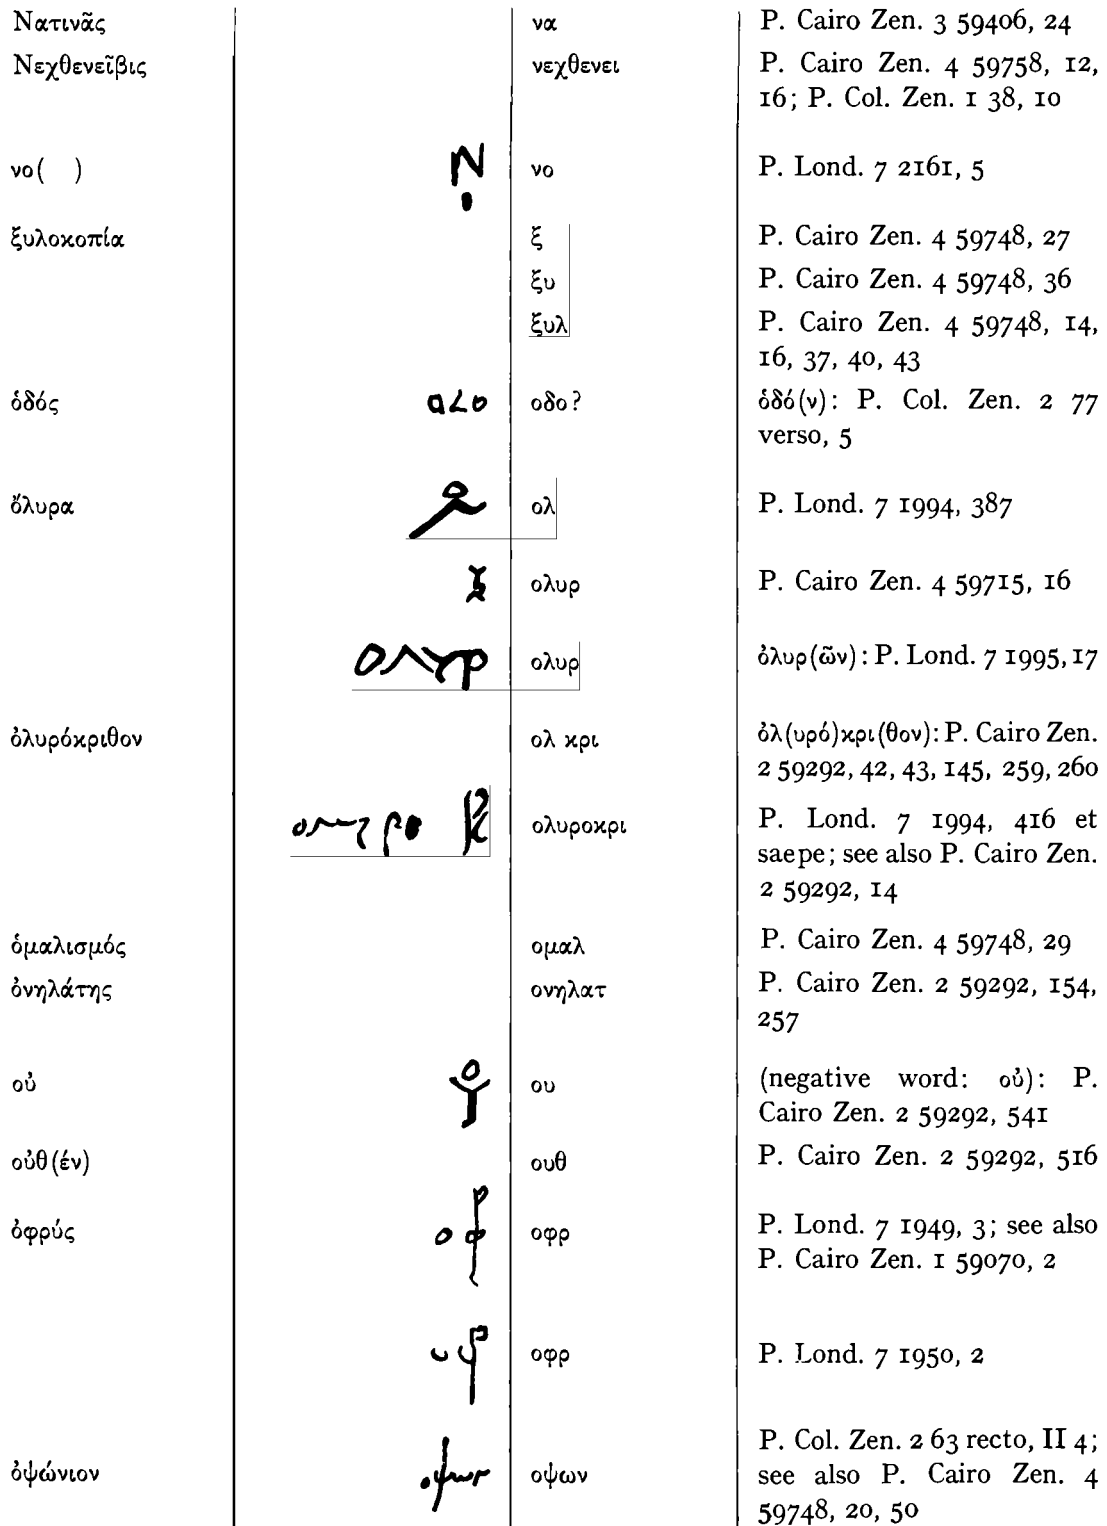 Νατινᾶς να P. Cairo Zen. 3 59406, 24
Νεχθενεῖβις νεχθενει P. Cairo Zen. 4 59758, 12,
16; P. Col. Zen. 1 38, 10
νο( ) Ν ο νο P. Lond. 7 2161, 5
ξυλοκοπία ξ P. Cairo Zen. 4 59748, 27
ξυ P. Cairo Zen. 4 59748, 36
ξυλ P. Cairo Zen. 4 59748, 14,
16, 37, 40, 43
ὁδός οδο? ὁδό(ν): P. Col. Zen. 2 77
verso, 5
ὄλυρα ολ P. Lond. 7 1994, 387
ολυρ P. Cairo Zen. 4 59715, 16
ολυρ ολυρ ὀλυρ(ῶν): P. Lond. 7 1995, 17
ὀλυρόκριθον ολ κρι ὀλ(υρό)κρι(θον): P. Cairo Zen.
2 59292, 42, 43, 145, 259, 260
ολυροκρι P. Lond. 7 1994, 416 et
saepe; see also P. Cairo Zen.
2 59292, 14
ὁμαλισμός ομαλ P. Cairo Zen. 4 59748, 29
ὀνηλάτης ονηλατ P. Cairo Zen. 2 59292, 154,
257
οὐ ου (negative word: οὐ): P.
Cairo Zen. 2 59292, 541
οὐθ(έν) ουθ P. Cairo Zen. 2 59292, 516
ὀφρύς οφρ P. Lond. 7 1949, 3; see also
P. Cairo Zen. 1 59070, 2
οφρ P. Lond. 7 1950, 2
ὀψώνιον οψων P. Col. Zen. 2 63 recto, II 4;
see also P. Cairo Zen. 4
59748, 20, 50